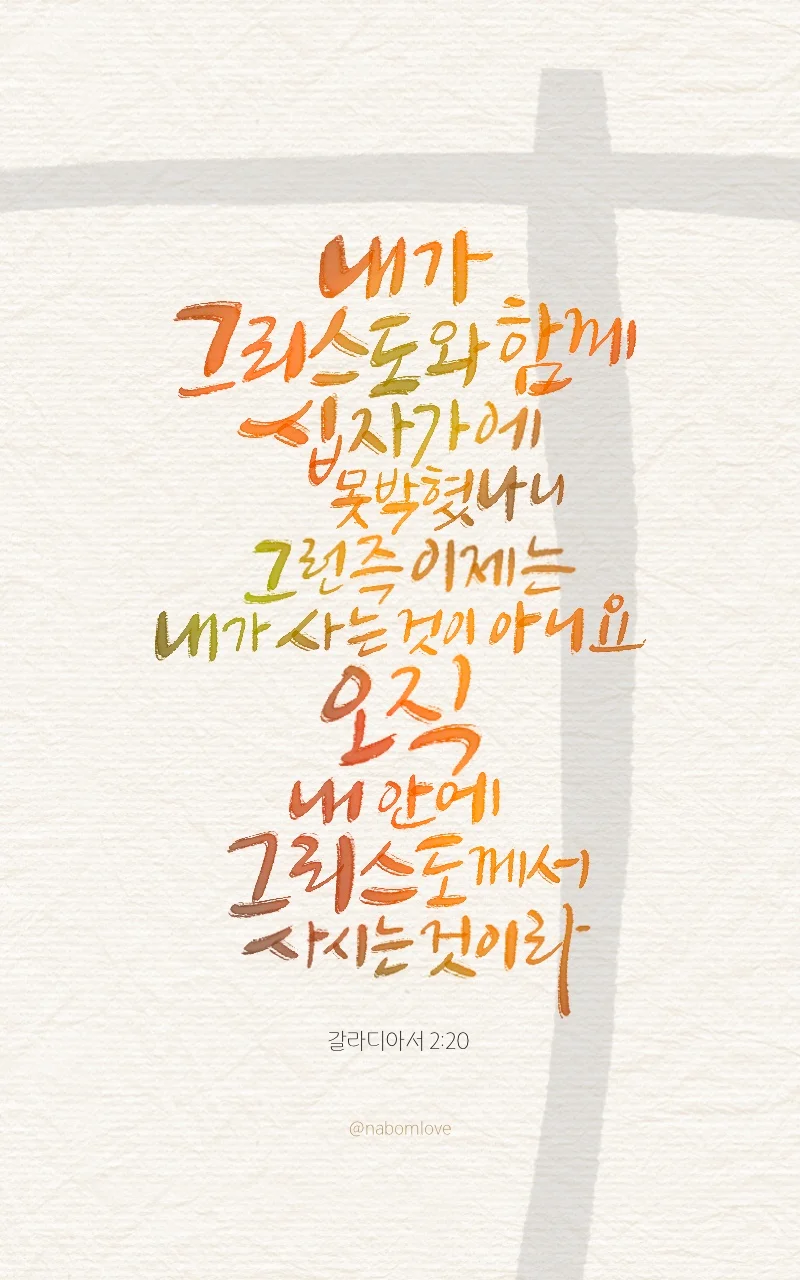 내가
그리스도와 함께
십자가에
못박혔나니
그런즉 이제는
내가 사는 것이 아니요
오직
내 안에
그리스도께서
사시는 것이라
갈라디아서 2:20
@nabomlove